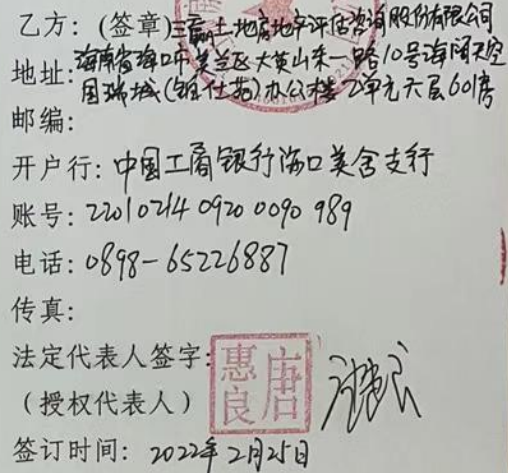 乙方:(签章)三赢土地房地产评估咨询股份有限公司
地址:海南省海口市美兰区大英山东一路10号海阔天空
国瑞城(铂仕苑)办公楼2单元六层601房
邮编:
开户行:中国工商银行海口美舍支行
账号:2201021409200090989
电话:0898-65226887
传真:
法定代表人签字:
唐惠良
(授权代表人)
签订时间:2022年2月25日